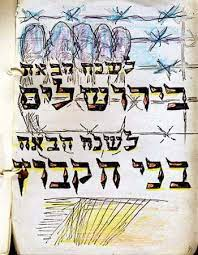 לשנה הבאה
בירושלים
לשנה הבאה
בני הקבוץ